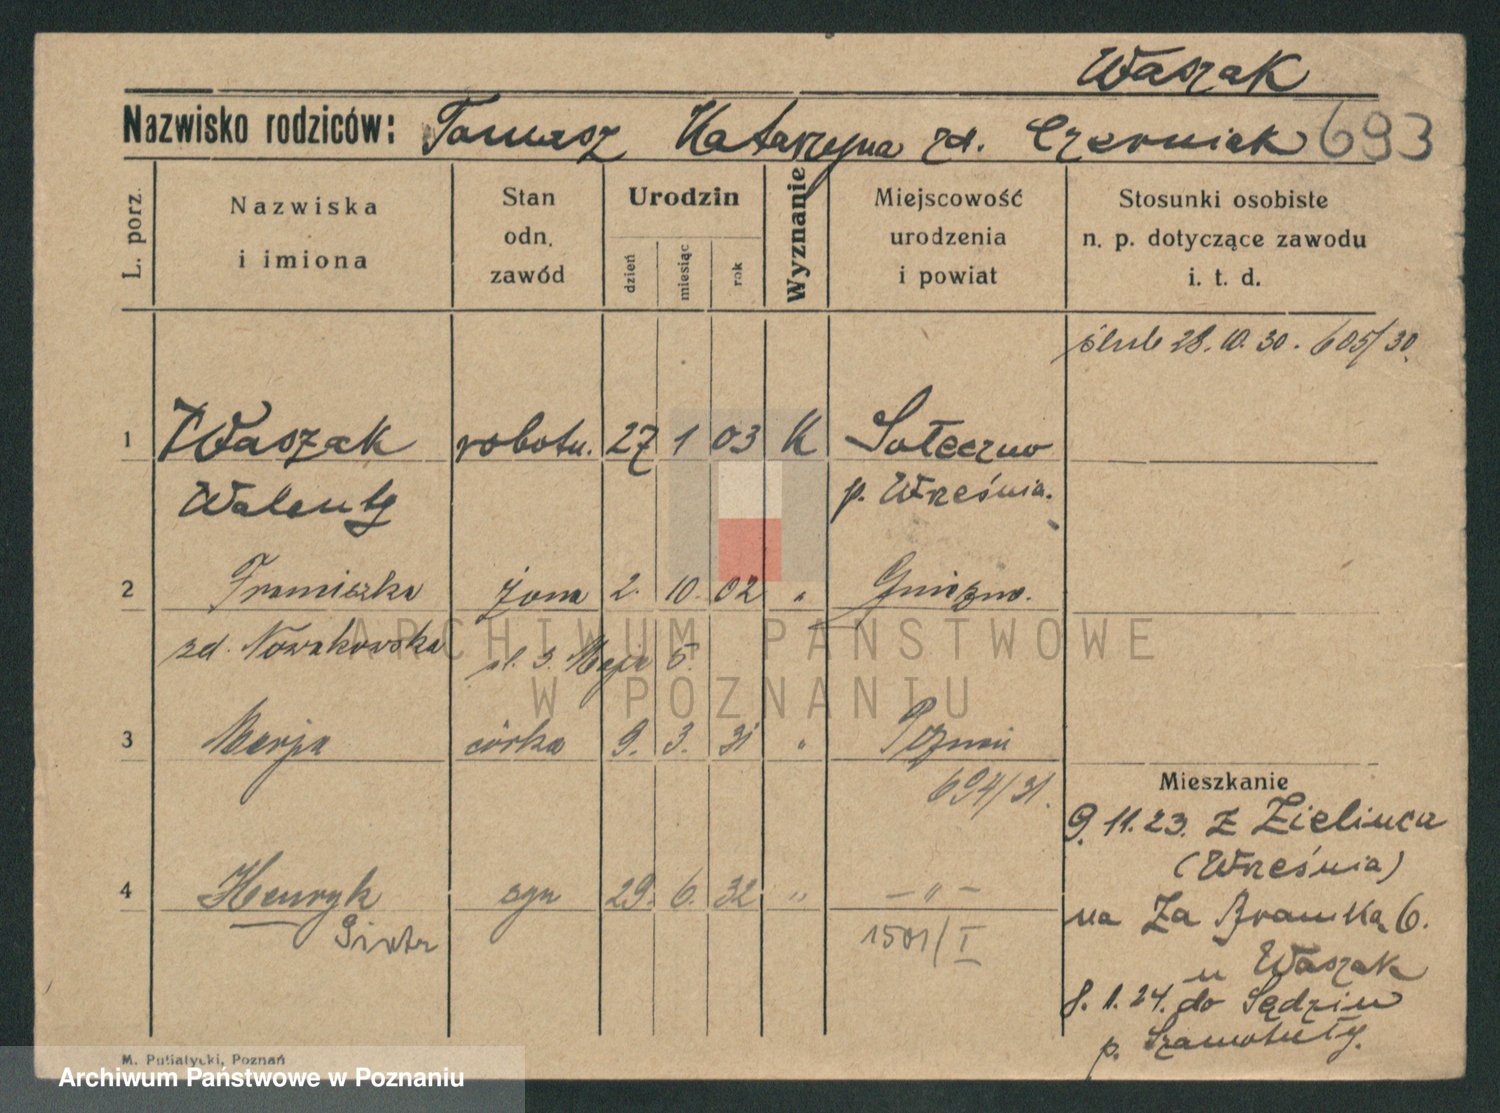 Waszak
Nazwisko rodziców: Tomasz Katarzyna zd. Czerniak 693
L. porz.
Nazwiska
i imiona
Stan
odn.
zawód
Urodzin
dzień
miesiąc
rok
Wyznanie
Miejscowość
urodzenia
i powiat
Stosunki osobiste
n. p. dotyczące zawodu
i. t. d.
ślub 28.10.30. 605/30.
1 Waszak robotn. 27 1 03 K Sołeczno
Walenty p. Września.
2 Franciszka żona 2. 10. 02 " Gniezno.
zd. Nowakowska ul. 3. Maja 5.
3 Marja córka 9. 3. 31 " Poznań
694/31.
4 Henryk syn 29. 6. 32 " – " –
Piotr 1501/I
Mieszkanie
9. 11. 23. z Zielińca
(Września)
na Za Bramką 6.
u Waszak
8. 1. 24. do Sędzin
p. Szamotuły.
ARCHIWUM PAŃSTWOWE
W POZNANIU
M. Putiatycki, Poznań
Archiwum Państwowe w Poznaniu